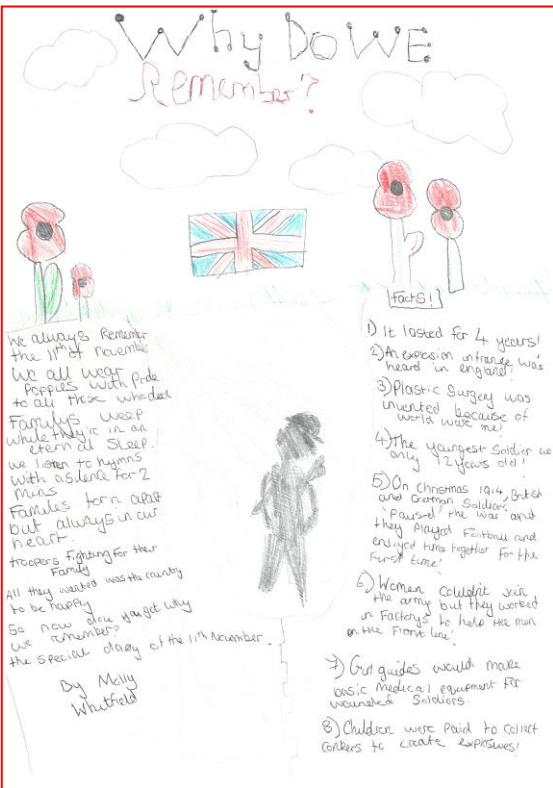 Why Do WE
Remember?
We always Remember
the 11th of november
We all wear
Poppies with Pride
to all those who died
Familys weep
while they're in an
eternal Sleep.
we listen to hymns
with a silence for 2
mins
Families torn apart
but always in our
heart.
troopers fighting for their
Family
All they wanted was the country
to be happy
So now do you get why
we remember?
the special day of the 11th November.
By Molly
Whitfield
Facts!
1) It lasted for 4 years!
2) An explosion in france was
heard in england!
3) Plastic Surgery was
invented because of
world war one!
4) The youngest Soldier was
only 12 years old!
5) On Christmas 1914, British
and German Soldiers
'paused' the war and
they Played Football and
enjoyed time together for the
first time!
6) Women couldn't join
the army but they worked
in Factorys to help the men
on the Front line!
7) Girl guides would make
basic medical equipment for
wounded Soldiers.
8) Children were Paid to collect
conkers to create explosives!